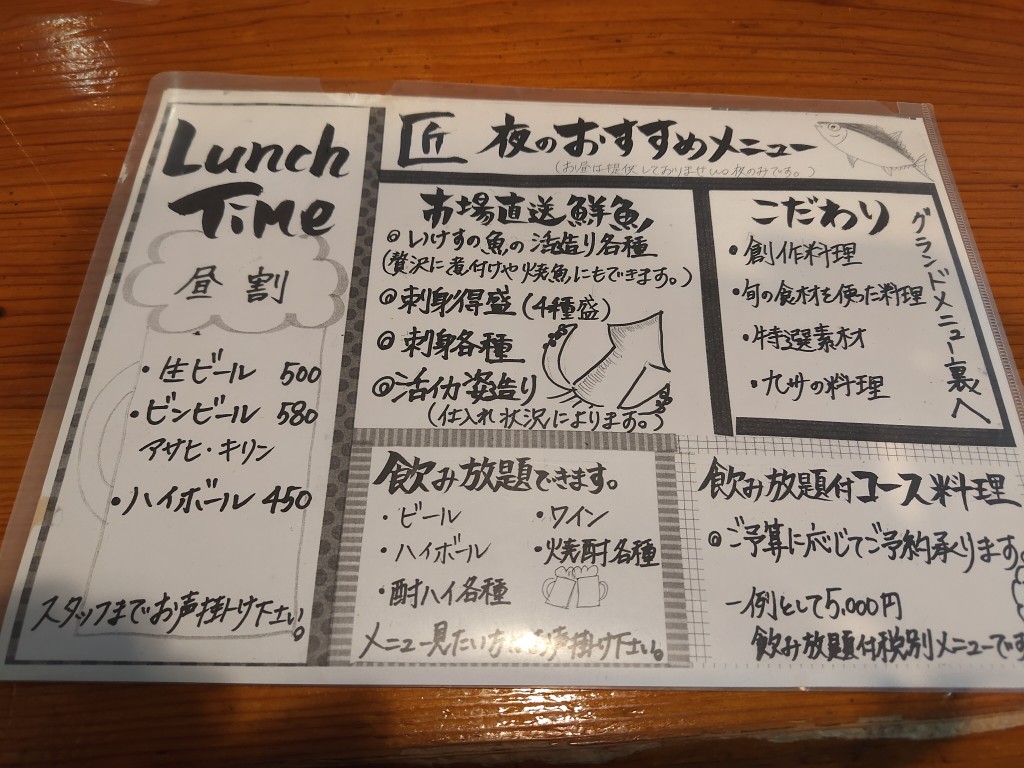 Lunch
Time
昼割
・生ビール 500
・ビンビール 580
アサヒ・キリン
・ハイボール 450
スタッフまでお声掛け下さい。
匠 夜のおすすめメニュー
(お昼は提供しておりません。夜のみです。)
市場直送鮮魚
◎いけすの魚の活造り各種
(贅沢に煮付けや焼魚にもできます。)
◎刺身得盛(4種盛)
◎刺身各種
◎活イカ姿造り
(仕入れ状況によります。)
こだわり
・創作料理
・旬の食材を使った料理
・特選素材
・九州の料理
グランドメニュー裏へ
飲み放題できます。
・ビール
・ハイボール
・酎ハイ各種
・ワイン
・焼酎各種
メニュー見たい方はお声掛け下さい。
飲み放題付コース料理
◎ご予算に応じてご予約承ります。
一例として5,000円
飲み放題付税別メニューです